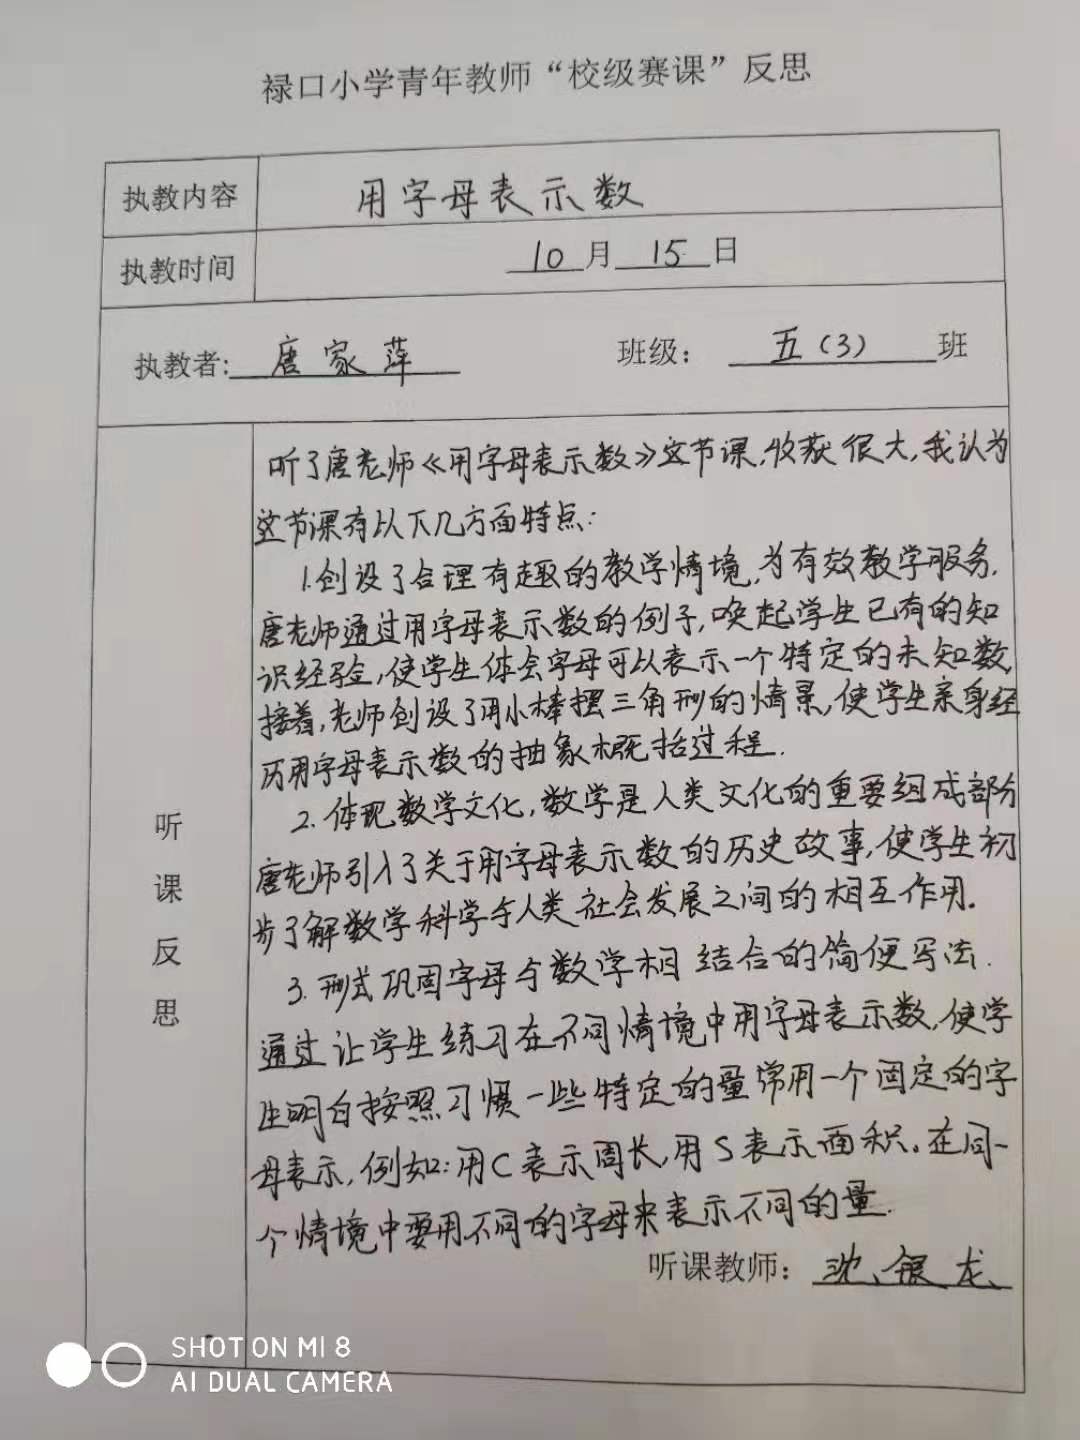 禄口小学青年教师“校级赛课”反思
执教内容 用字母表示数
执教时间 10月15日
执教者:唐家萍 班级: 五(3) 班
听了唐老师《用字母表示数》这节课,收获很大,我认为
这节课有以下几方面特点:
1.创设了合理有趣的教学情境,为有效教学服务.
唐老师通过用字母表示数的例子,唤起学生已有的知
识经验,使学生体会字母可以表示一个特定的未知数,
接着,老师创设了用小棒摆三角形的情景,使学生亲身经
历用字母表示数的抽象概括过程.
2.体现数学文化,数学是人类文化的重要组成部分
唐老师引入了关于用字母表示数的历史故事,使学生初
步了解数学科学与人类社会发展之间的相互作用.
3.形式巩固字母与数学相结合的简便写法.
通过让学生练习在不同情境中用字母表示数,使学
生明白按照习惯一些特定的量常用一个固定的字
母表示,例如:用C表示周长,用S表示面积。在同一
个情境中要用不同的字母来表示不同的量.
听课反思
听课教师: 沈银龙
SHOT ON MI 8
AI DUAL CAMERA